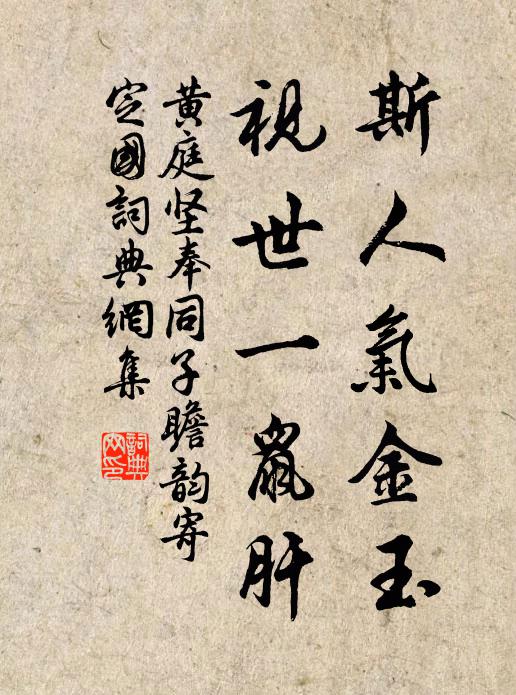 斯人氣金玉
視世一鼠肝
黄庭坚奉同子瞻韵寄
定國詞典網集
詞典
网印